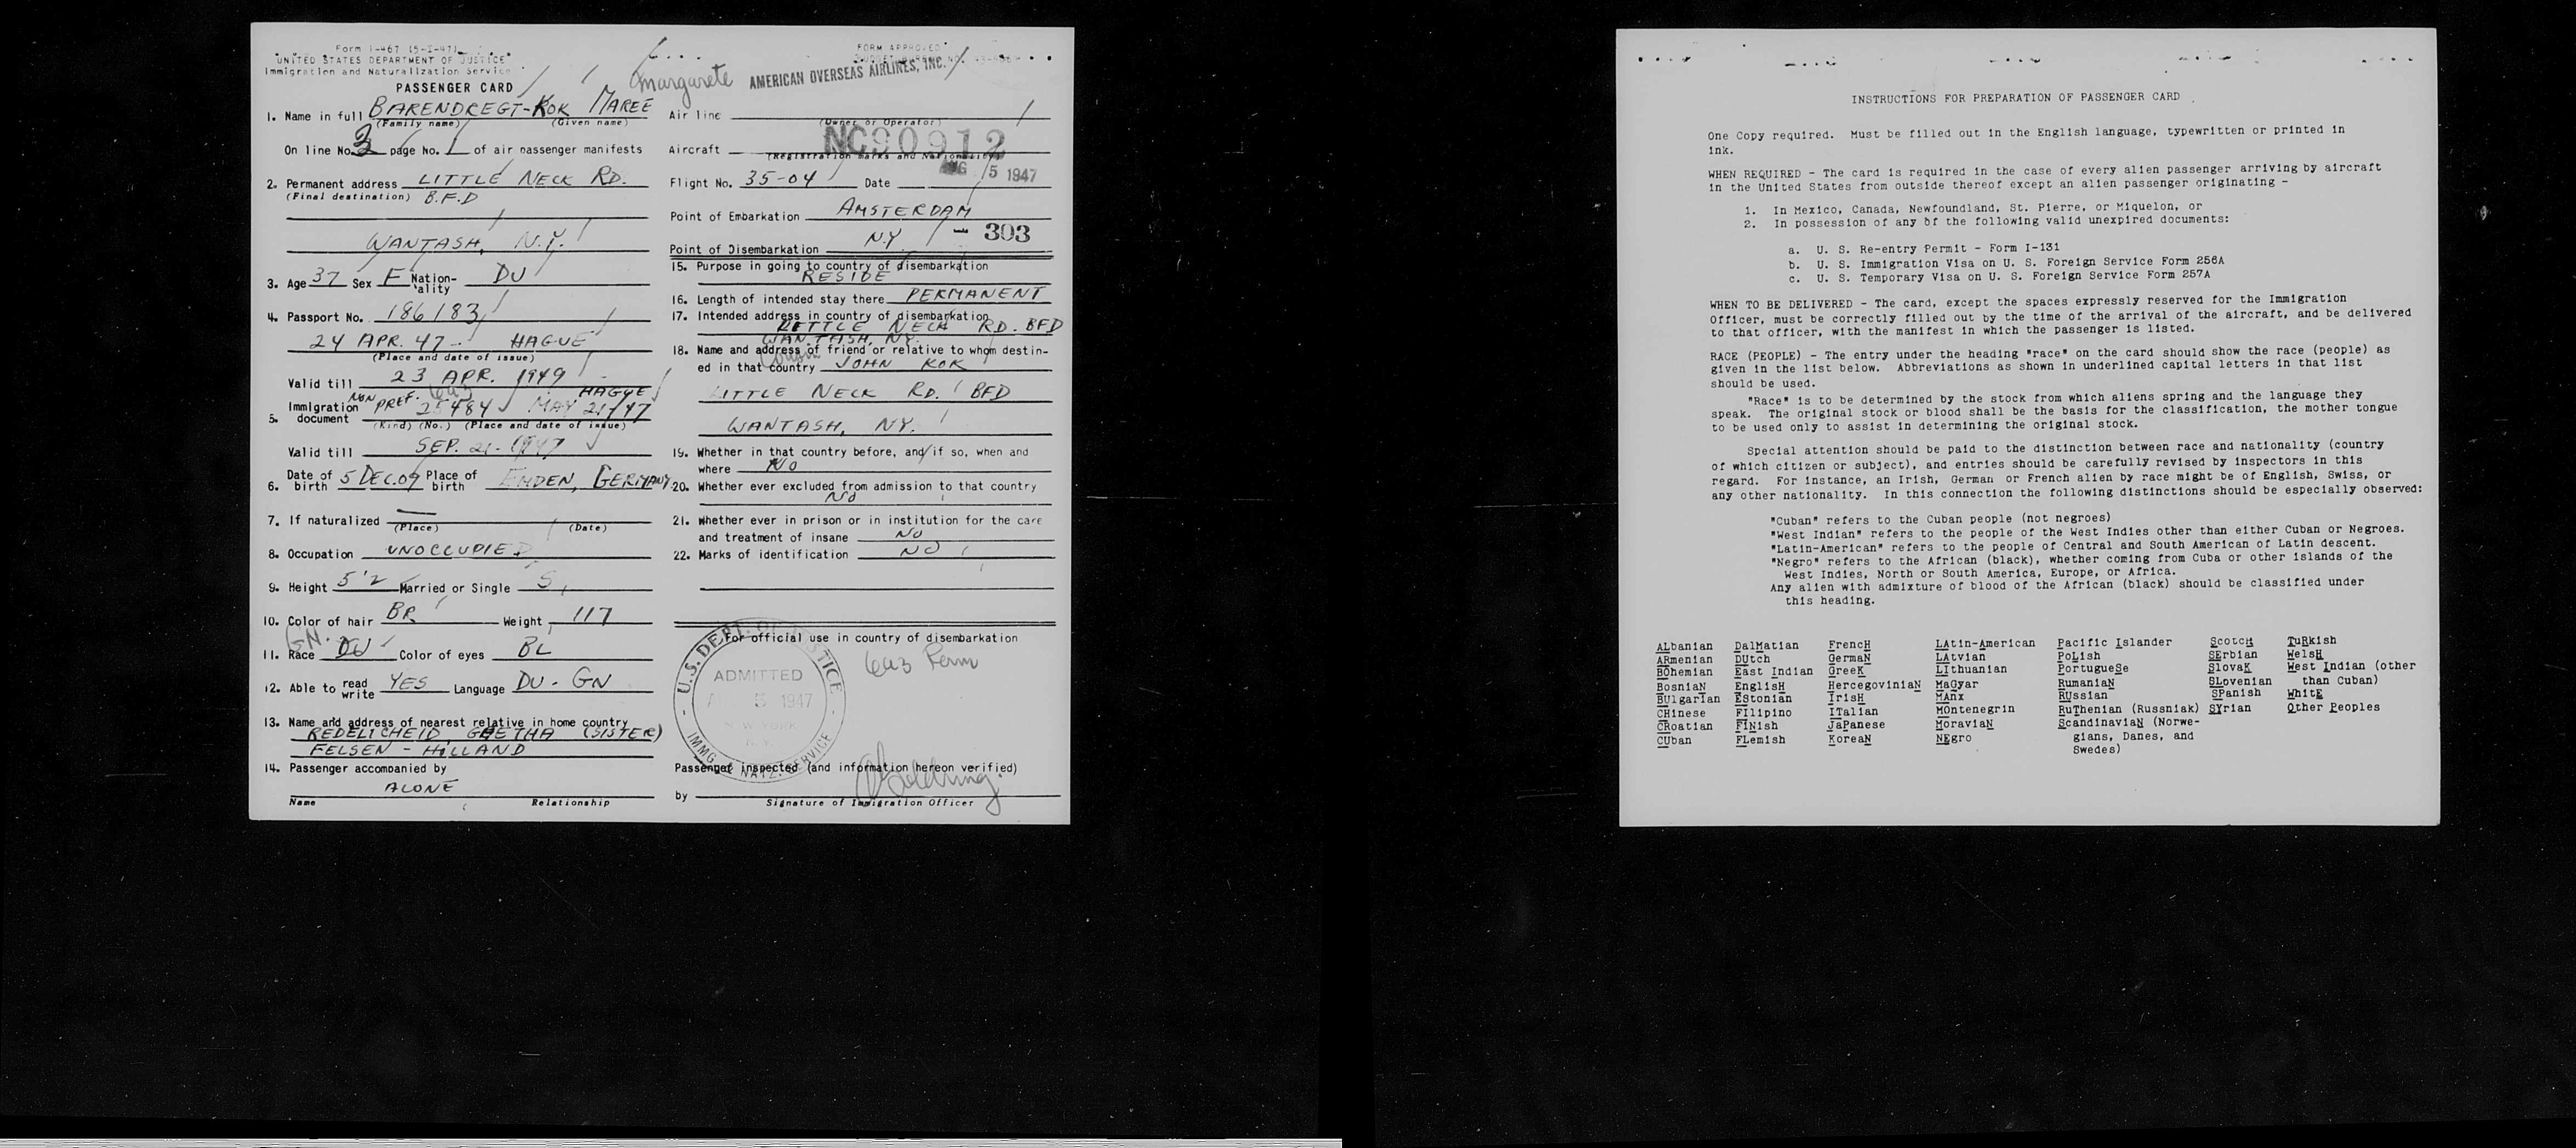 Form I-467 (5-1-47)
UNITED STATES DEPARTMENT OF JUSTICE
Immigration and Naturalization Service
PASSENGER CARD
FORM APPROVED
Margarete
AMERICAN OVERSEAS AIRLINES, INC.
1. Name in full BARENDREGT-KOK MAREE
(Family name) (Given name)
On line No. 3 page No. 1 of air passenger manifests
2. Permanent address LITTLE NECK RD.
(Final destination) B.F.D
WANTASH, N.Y.
3. Age 37 Sex F Nation-ality DU
4. Passport No. 186183
24 APR. 47 - HAGUE
(Place and date of issue)
Valid till 23 APR. 1949
HAGUE
5. Immigration document NON PREF. 6a3 25484 MAY 21/47
(Kind) (No.) (Place and date of issue)
Valid till SEP. 21. 1947
6. Date of birth 5 DEC.09 Place of birth EMDEN, GERMANY
7. If naturalized —
(Place) (Date)
8. Occupation UNOCCUPIED
9. Height 5'2 Married or Single S
10. Color of hair BR Weight 117
GN.
11. Race DU Color of eyes BL
12. Able to read write YES Language DU - GN
13. Name and address of nearest relative in home country
REDELICHEID, GRETHA (SISTER)
FELSEN - HILLAND
14. Passenger accompanied by
ALONE
Name Relationship
Air line
(Owner or Operator)
Aircraft NC90912
(Registration marks and Nationality)
Flight No. 35-04 Date AUG 5 1947
Point of Embarkation AMSTERDAM
Point of Disembarkation N.Y. - 303
15. Purpose in going to country of disembarkation
RESIDE
16. Length of intended stay there PERMANENT
17. Intended address in country of disembarkation
LITTLE NECK RD. BFD
WANTASH, NY.
18. Name and address of friend or relative to whom destin-
ed in that country JOHN KOK
Cousin
LITTLE NECK RD. BFD
WANTASH, NY.
19. Whether in that country before, and if so, when and
where NO
20. Whether ever excluded from admission to that country
NO
21. Whether ever in prison or in institution for the care
and treatment of insane NO
22. Marks of identification NO
For official use in country of disembarkation
6a3 Perm
U.S. DEPT. OF JUSTICE
ADMITTED
AUG 5 1947
NEW YORK
N.Y.
IMMIG. & NATZ. SERVICE
Passenger inspected (and information hereon verified)
by
Signature of Immigration Officer
INSTRUCTIONS FOR PREPARATION OF PASSENGER CARD
One Copy required. Must be filled out in the English language, typewritten or printed in
ink.
WHEN REQUIRED - The card is required in the case of every alien passenger arriving by aircraft
in the United States from outside thereof except an alien passenger originating -
1. In Mexico, Canada, Newfoundland, St. Pierre, or Miquelon, or
2. In possession of any of the following valid unexpired documents:
a. U. S. Re-entry Permit - Form I-131
b. U. S. Immigration Visa on U. S. Foreign Service Form 256A
c. U. S. Temporary Visa on U. S. Foreign Service Form 257A
WHEN TO BE DELIVERED - The card, except the spaces expressly reserved for the Immigration
Officer, must be correctly filled out by the time of the arrival of the aircraft, and be delivered
to that officer, with the manifest in which the passenger is listed.
RACE (PEOPLE) - The entry under the heading "race" on the card should show the race (people) as
given in the list below. Abbreviations as shown in underlined capital letters in that list
should be used.
"Race" is to be determined by the stock from which aliens spring and the language they
speak. The original stock or blood shall be the basis for the classification, the mother tongue
to be used only to assist in determining the original stock.
Special attention should be paid to the distinction between race and nationality (country
of which citizen or subject), and entries should be carefully revised by inspectors in this
regard. For instance, an Irish, German or French alien by race might be of English, Swiss, or
any other nationality. In this connection the following distinctions should be especially observed:
"Cuban" refers to the Cuban people (not negroes)
"West Indian" refers to the people of the West Indies other than either Cuban or Negroes.
"Latin-American" refers to the people of Central and South American of Latin descent.
"Negro" refers to the African (black), whether coming from Cuba or other islands of the
West Indies, North or South America, Europe, or Africa.
Any alien with admixture of blood of the African (black) should be classified under
this heading.
ALbanian
ARmenian
BOhemian
BosniaN
BUlgarIan
CHinese
CRoatian
CUban
DalMatian
DUtch
East Indian
EnglisH
EStonian
FIlipino
FINish
FLemish
FrencH
GermaN
GreeK
HercegoviniaN
IrisH
ITalian
JaPanese
KoreaN
LAtin-American
LAtvian
LIthuanian
MaGyar
MAnx
MOntenegrin
MoraviaN
NEgro
Pacific Islander
PoLish
PortugueSe
RumaniaN
RUssian
RuThenian (Russniak)
ScandinaviaN (Norwe-
gians, Danes, and
Swedes)
ScotcH
SErbian
SlovaK
SLovenian
SPanish
SYrian
TuRkish
WelsH
West Indian (other
than Cuban)
WhitE
Other Peoples